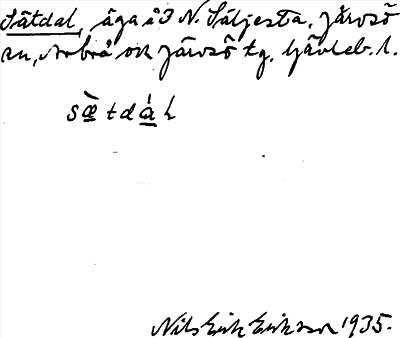 Sätdal, äga å I N. Säljesta, Järvsö
sn, Arbrå och Järvsö tg, Gävleb. l.
sæ̀tdál
Nils Erik Eriksson 1935.